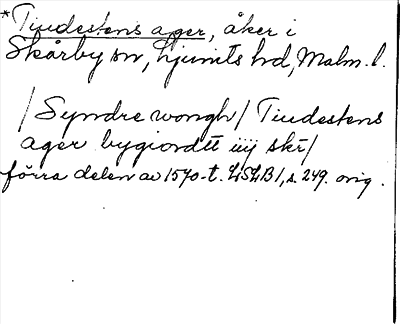 *Tiudestens ager, åker i
Skårby sn, Ljunits hd, Malm. l.
/Syndre wongh/ Tiudestens
ager bygiordtt iiij skr/
förra delen av 1570-t. LSLB 1, s. 249. orig.